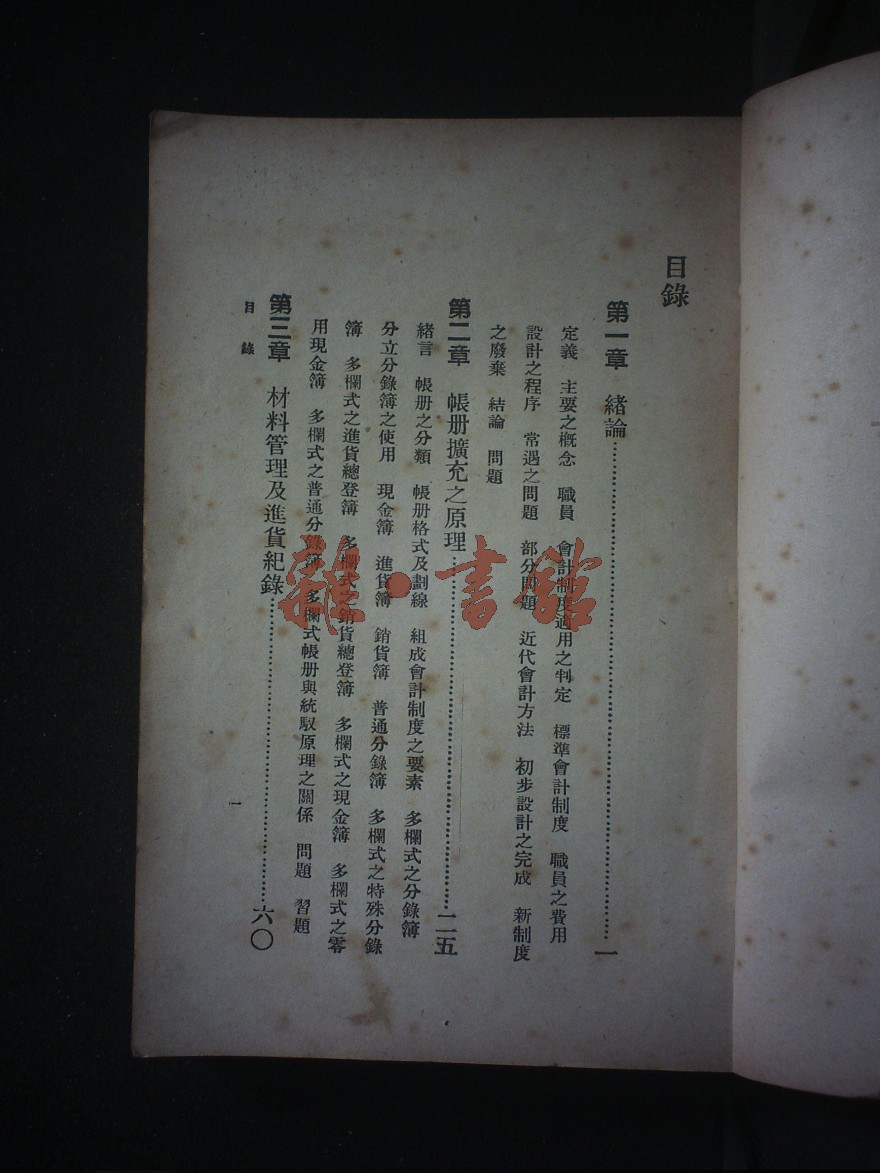 目錄
第一章　緒論…………一
定義　主要之概念　職員　會計制度適用之判定　標準會計制度　職員之費用
設計之程序　常遇之問題　部分問題　近代會計方法　初步設計之完成　新制度
之廢棄　結論　問題
第二章　帳册擴充之原理…………二五
緒言　帳册之分類　帳册格式及劃線　組成會計制度之要素　多欄式之分錄簿
分立分錄簿之使用　現金簿　進貨簿　銷貨簿　普通分錄簿　多欄式之特殊分錄
簿　多欄式之進貨總登簿　多欄式之銷貨總登簿　多欄式之現金簿　多欄式之零
用現金簿　多欄式之普通分錄簿　多欄式帳册與統馭原理之關係　問題　習題
第三章　材料管理及進貨紀錄…………六〇
目錄
一
雜·書館